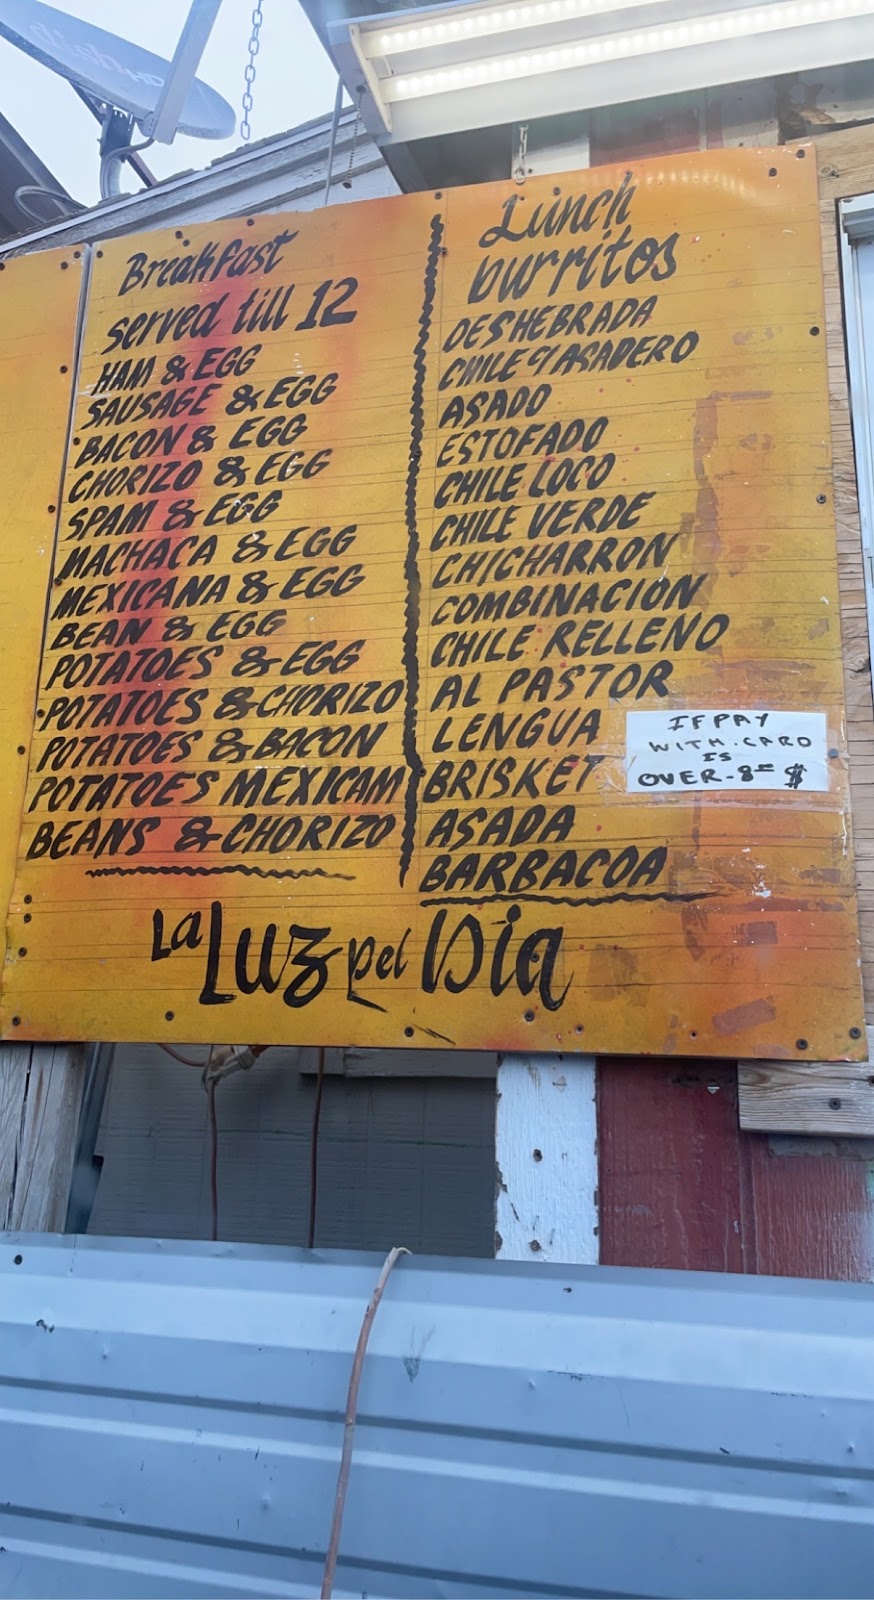 dish HD
Breakfast
served till 12
HAM & EGG
SAUSAGE & EGG
BACON & EGG
CHORIZO & EGG
SPAM & EGG
MACHACA & EGG
MEXICANA & EGG
BEAN & EGG
POTATOES & EGG
POTATOES & CHORIZO
POTATOES & BACON
POTATOES MEXICAM
BEANS & CHORIZO
Lunch
burritos
DESHEBRADA
CHILE C/ASADERO
ASADO
ESTOFADO
CHILE LOCO
CHILE VERDE
CHICHARRON
COMBINACION
CHILE RELLENO
AL PASTOR
LENGUA
BRISKET
ASADA
BARBACOA
IF PAY
WITH.CARD
IS
OVER-8= $
La Luz Del Dia